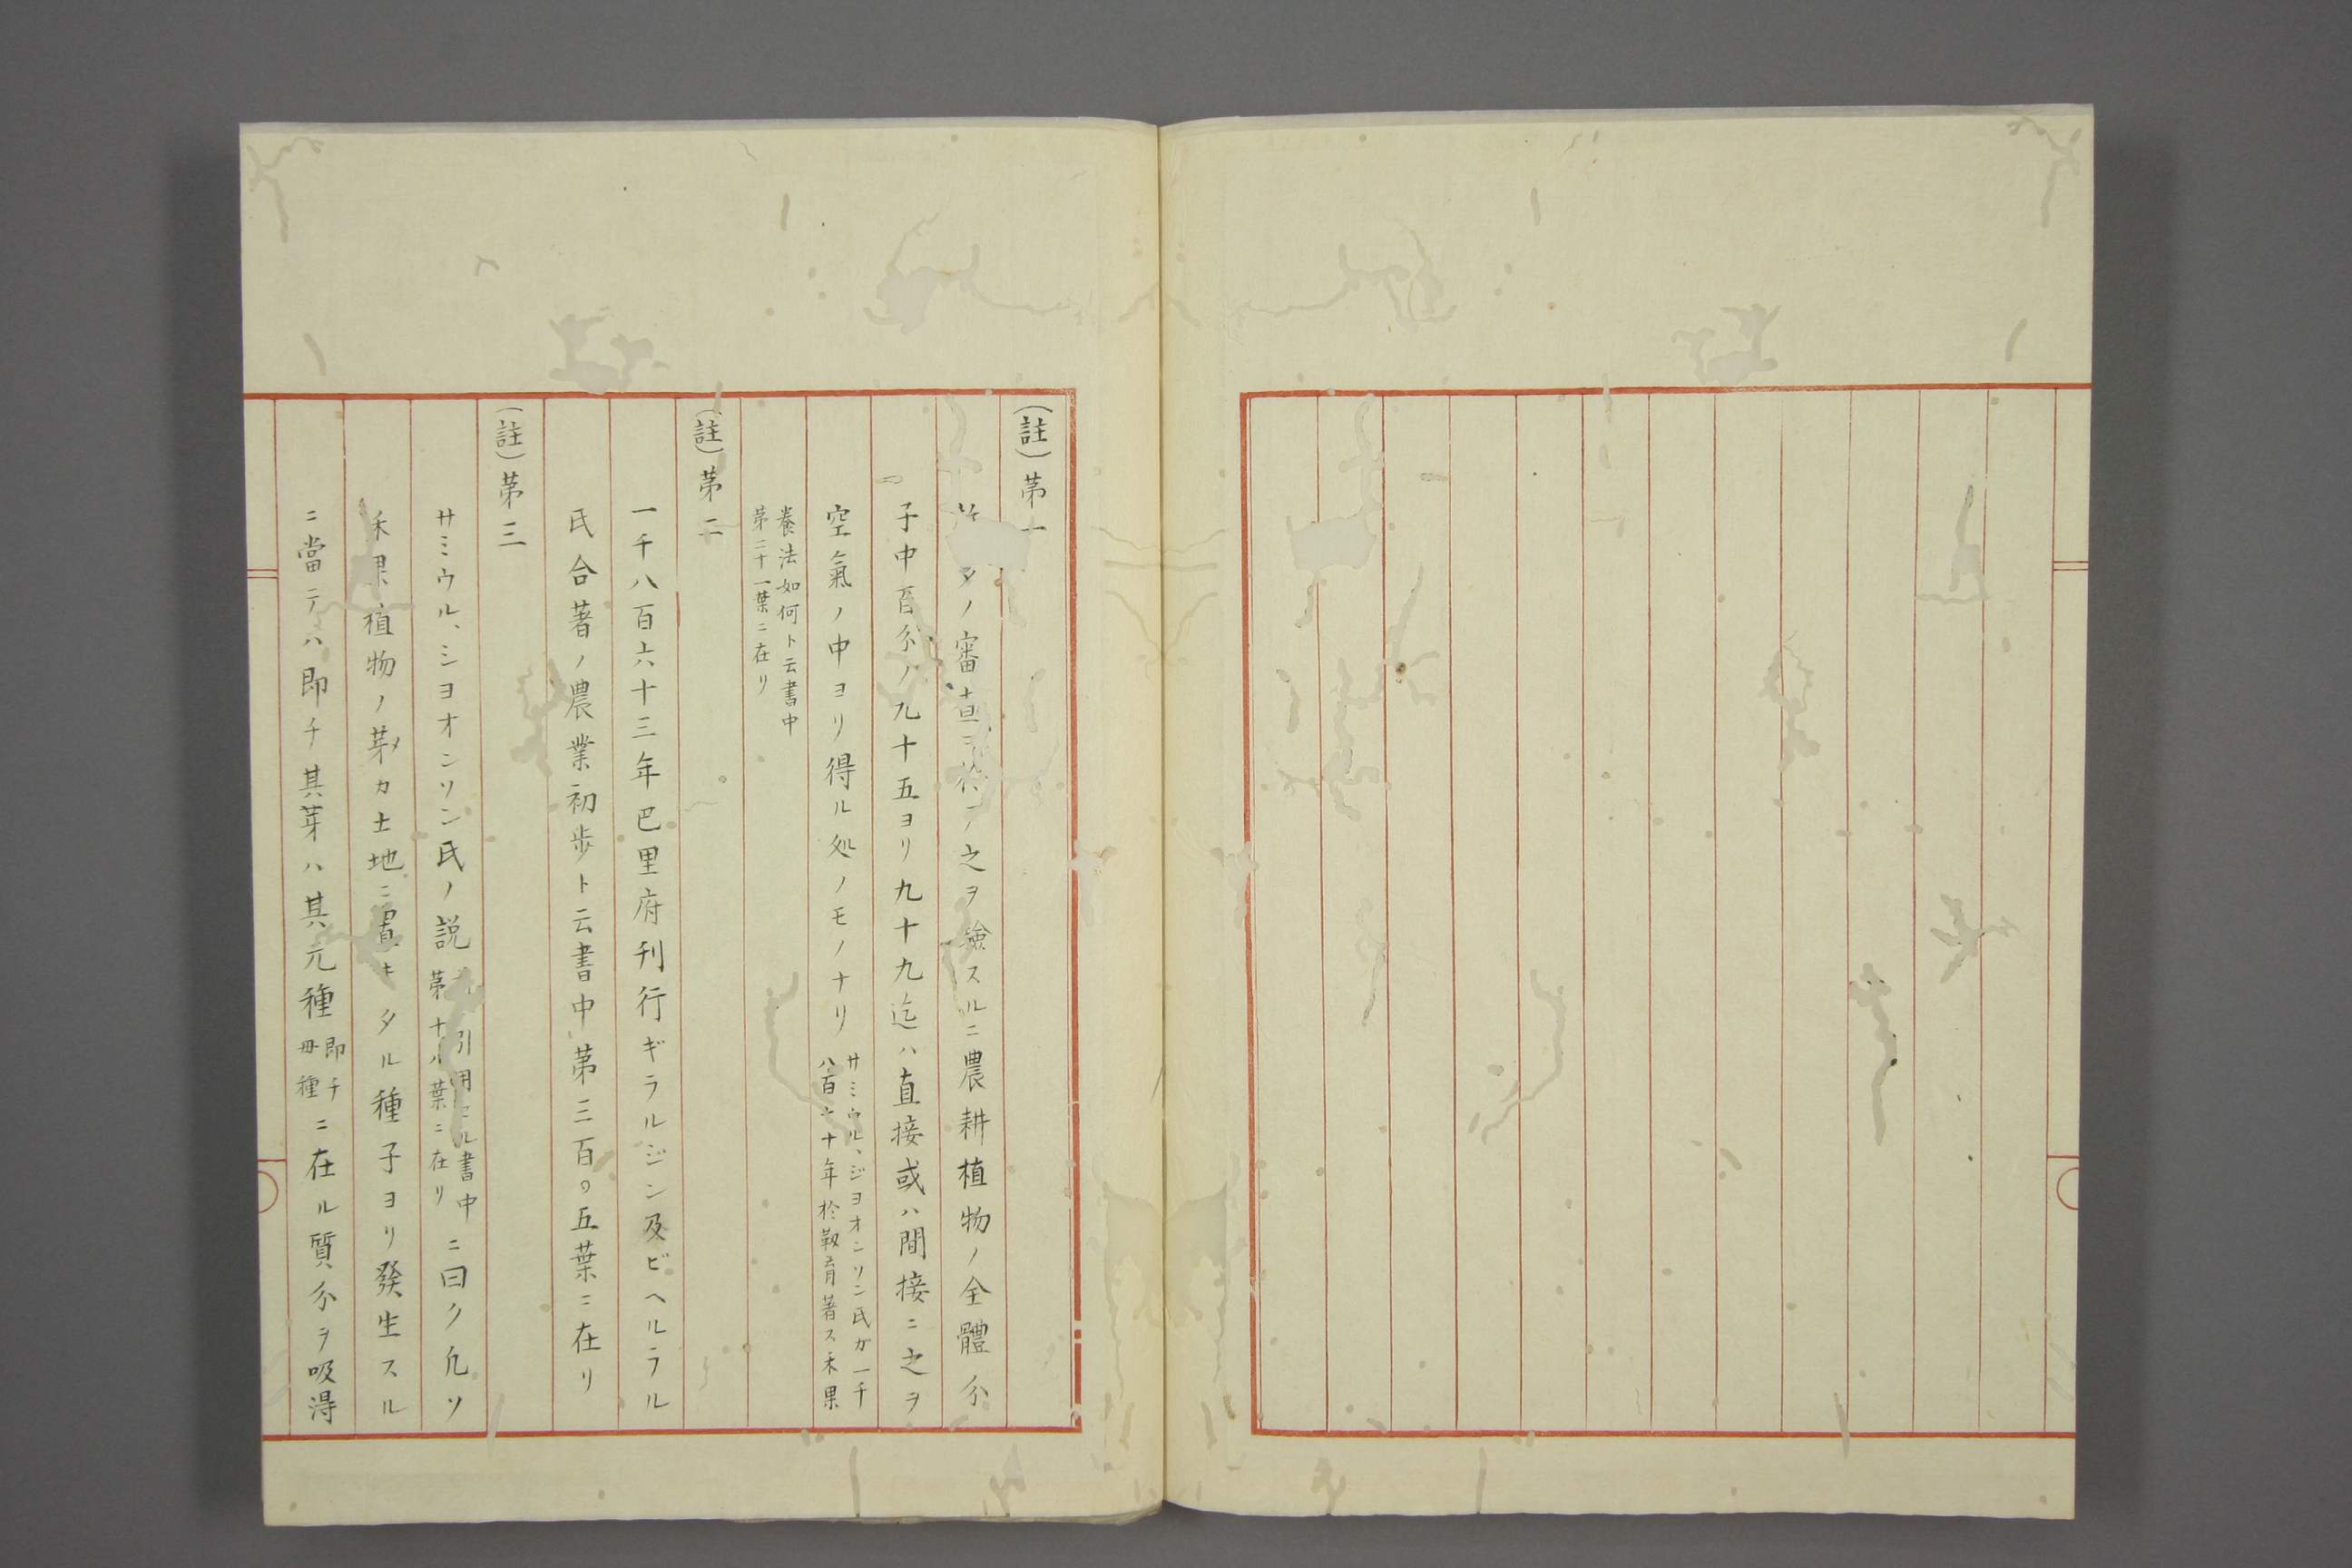 (註)第一
タノ審査ニ於テ之ヲ驗スルニ農耕植物ノ全體分
子中百分ノ九十五ヨリ九十九迄ハ直接或ハ間接ニ之ヲ
空氣ノ中ヨリ得ル処ノモノナリ
サミウル、ジヨオンソン氏ガ一千
八百六十年於著ス禾果
養法如何ト云書中
第二十一葉ニ在リ
(註)第二
一千八百六十三年巴里府刊行ギラルジン及ビヘルラル
氏合著ノ農業初歩ト云書中第三百〇五葉ニ在リ
(註)第三
サミウル、シヨオンソン氏ノ説
引用セル書中
第十八葉ニ在リ
ニ曰ク凡ソ
禾果植物ノ芽カ土地ニ置キタル種子ヨリ發生スル
ニ當テハ即チ其芽ハ其元種
即チ
毋種
ニ在ル質分ヲ吸淂